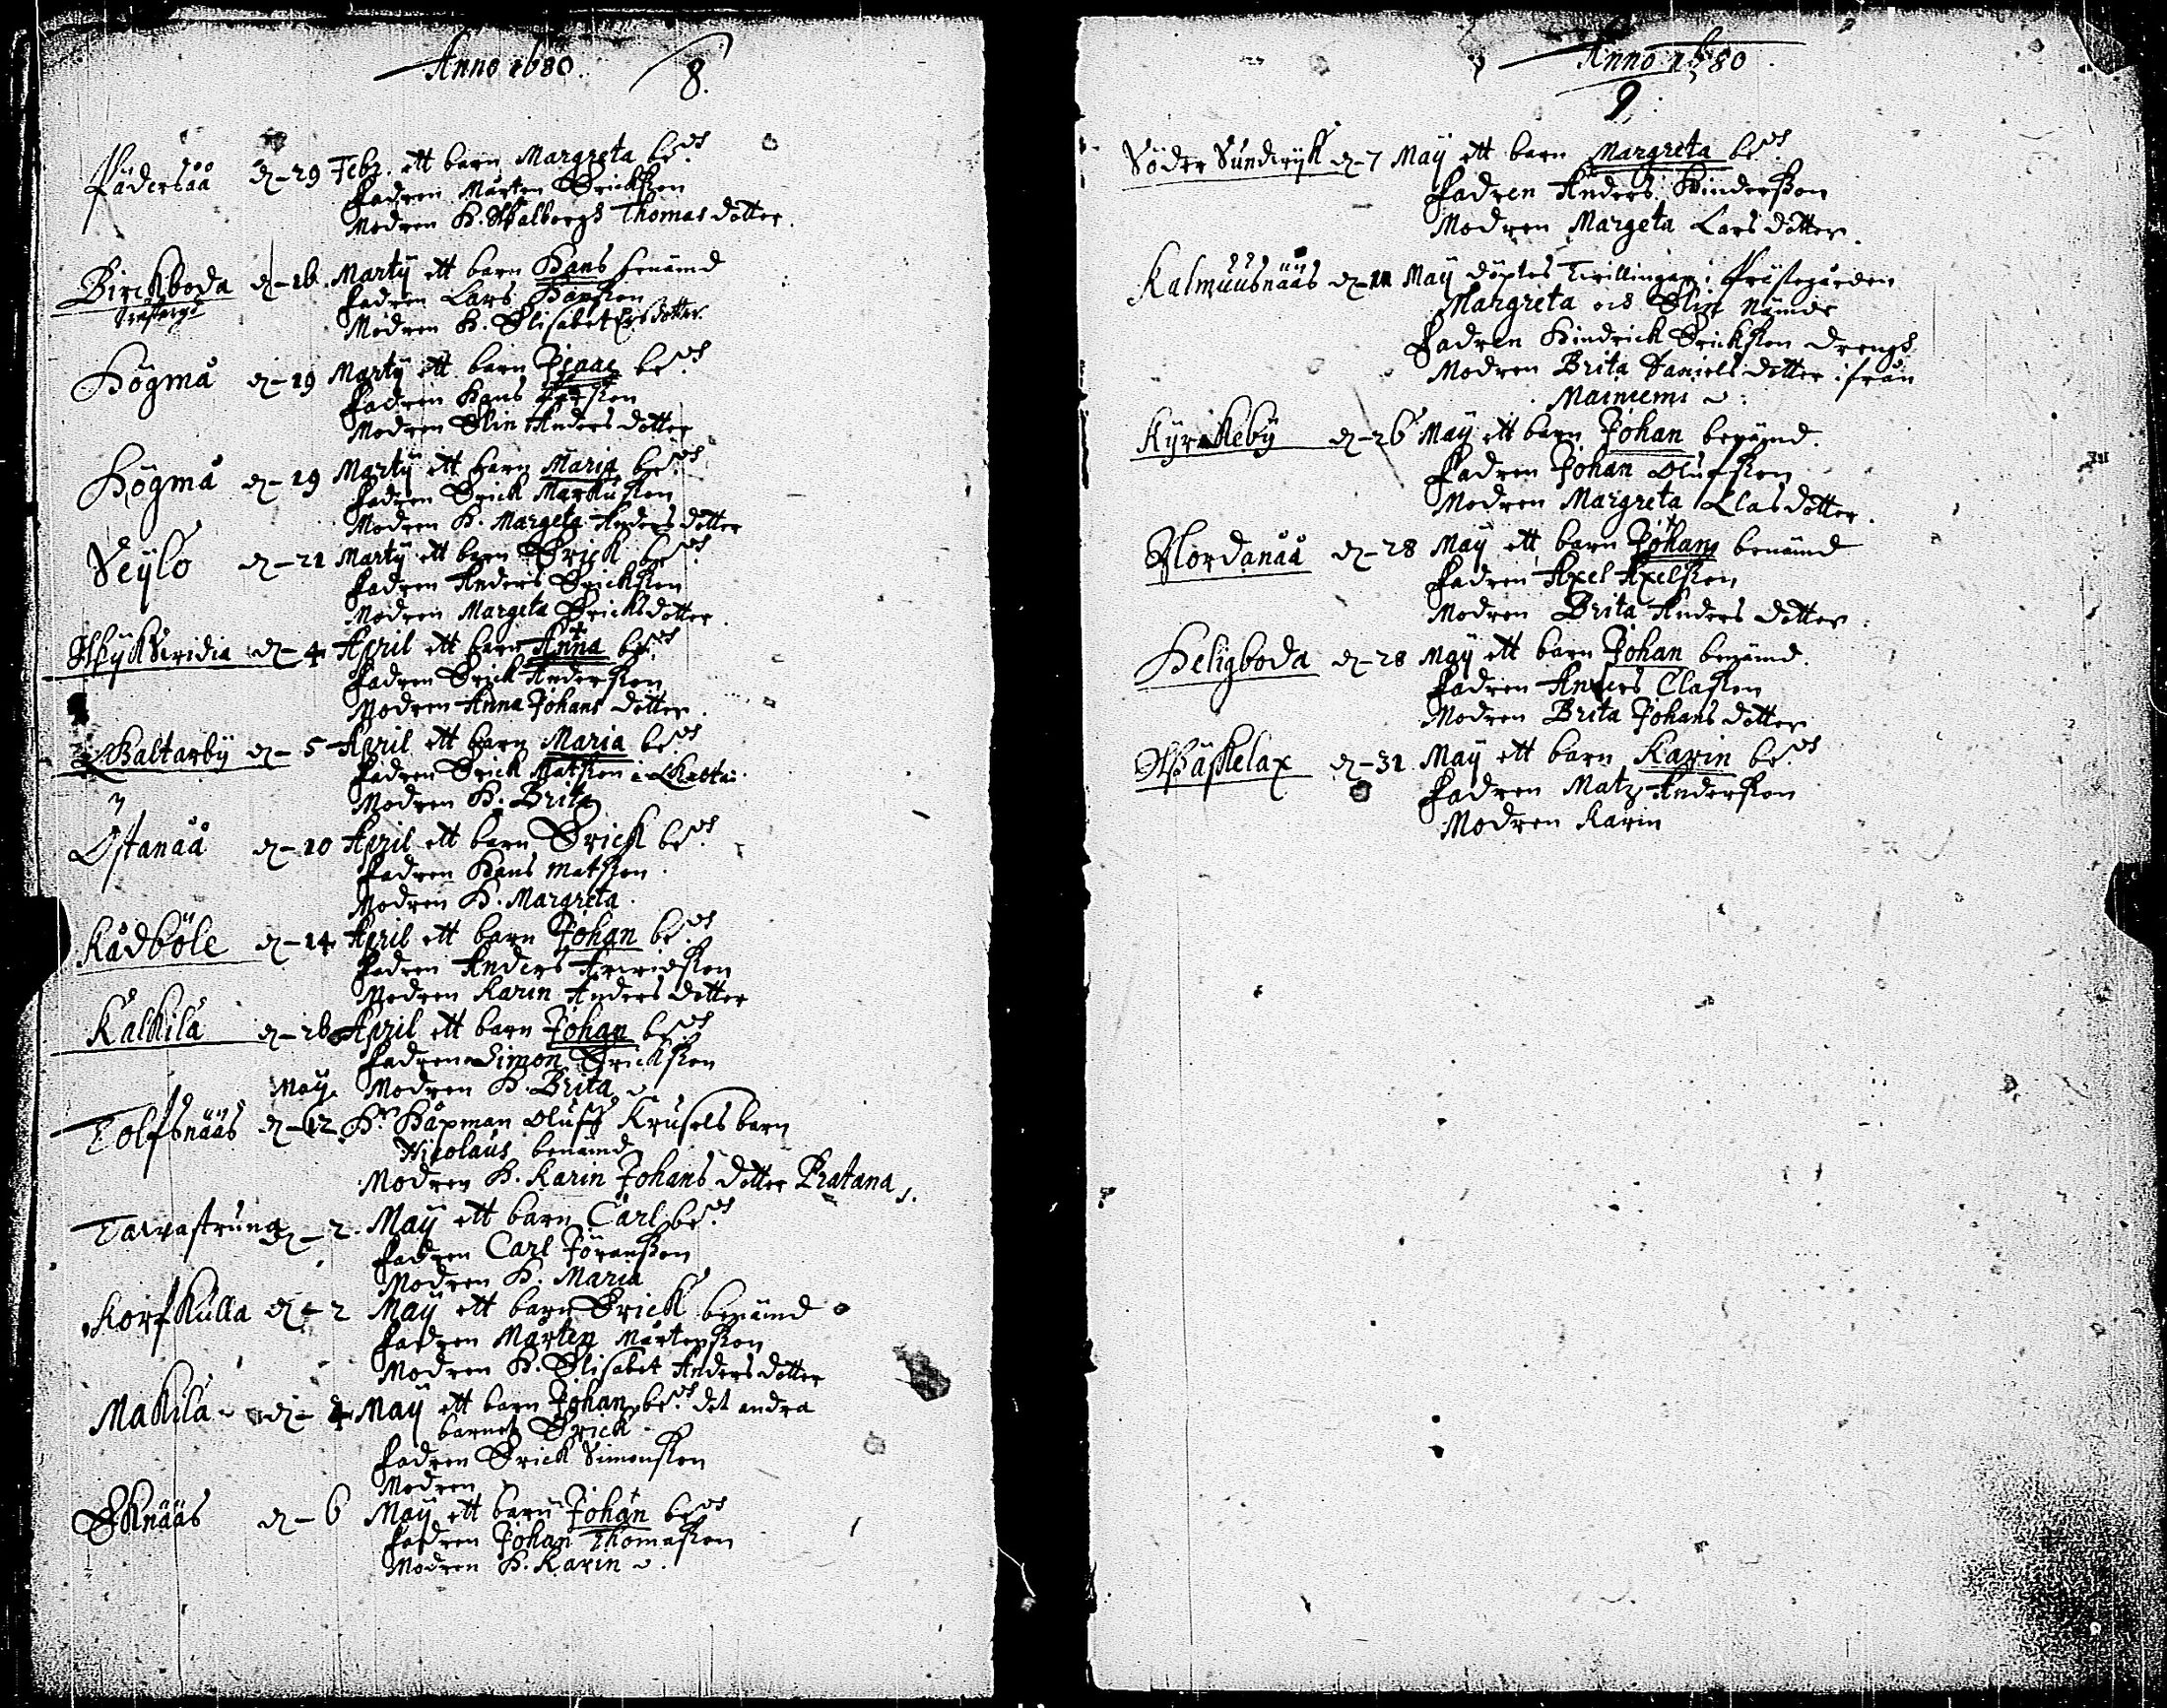 Anno 1680. 8.
Pädersåå d-29 Febr. ett barn Margreta bed
Fadren Mårten Erichsson
Modren H. Walborgh Thomas dotter.
Birckboda d-16. Marty ett barn Hans benämd
Fadren Lars Hansson
Modren H. Elisabet Ersdotter
Högmå d-19 Marty ett barn Isaac bed
Fadren Hans
Modren Elin Anders dotter
Högmå d-19 Marty ett barn Maria bed
Fadren Erick Markusson
Modren H. Margeta Anders dotter
Seylö d-21 Marty ett barn Erick bed
Fadren Anders Ericksson
Modren Margeta Ericksdotter
d-4 April ett barn Anna bed
Fadren Erick Andersson
Modren Anna Johans dotter.
Baltarby d-5 April ett barn Maria bed
Fadren Erick Matsson i
Modren H. Brita
Östanåå d-10 April ett barn Erick bed
Fadren Hans Matsson.
Modren H. Margreta.
Rådböle d-14 April ett barn Johan bed
Fadren Anders Arvidsson
Modren Karin Anders dotter
Kalkila d-26 April ett barn Johan bed
Fadren Simon Ericksson
May. Modren H. Brita
Tolfsnääs d-12 Hr. Hapman Oluff Krusels barn
Nicolaus benämd
Modren H. Karin Johans dotter Pratana
d-2. May ett barn Carl bed
Fadren Carl Jöransson
Modren H. Maria
Korfkulla d-2 May ett barn Erick benämd
Fadren Mårten Mårtensson
Modren H. Elisabet Anders dotter
Makila d-4 May ett barn Johan bed det andra
barnet Erick
Fadren Erick Simonsson
Modren
Eknääs d-6 May ett barn Johan bed
Fadren Johan Thomasson
Modren H. Karin
Anno 1680
9
Söder Sundvyk d-7 May ett barn Margreta bed
Fadren Anders Hindersson
Modren Margeta Lars dotter.
Kalmuusnääs d-11 May döptes Tvillingar i Prästegården
Margreta och Elin nämde
Fadren Hindrick Ericksson drengh
Modren Brita Daniels dotter ifrån
Mainiemi
Kyrckeby d-26 May ett barn Johan benämd.
Fadren Johan Olufsson
Modren Margreta Clas dotter.
Nordanåå d-28 May ett barn Johan benämd
Fadren Axel Axelsson
Modren Brita Anders dotter
Heligboda d-28 May ett barn Johan benämd.
Fadren Anders Classon
Modren Brita Johans dotter
d-31 May ett barn Karin bed
Fadren Matz Andersson
Modren Karin